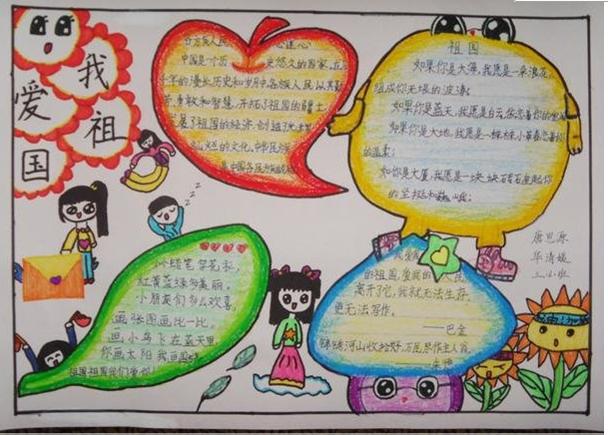 我
爱祖
国
中国是一个历史悠久的国家，在
千年的漫长历史和岁月中各族人民以其勤
劳、勇敢和智慧，开拓了祖国的疆土，
发展了祖国的经济，创造了
灿烂的文化，中华民族
是中国各民族
祖国
如果你是大海，我愿是一朵浪花，
组成你无垠的波涛；
如果你是蓝天，我愿是白云依恋着你的
如果你是大地，我愿是一棵棵小草
的温柔；
如你是大厦，我愿是一块块砖石
的坚挺和巍峨；
唐思源
华清媛
小蜡笔穿花衣，
红黄蓝绿多美丽。
小朋友们多么欢喜，
画张图画比一比。
画小鸟飞在蓝天里
你画太阳我画国旗
祖国祖国我们爱你！
我爱我
的祖国，爱我的人民，
离开了它，我就无法生存，
更无法写作。
——巴金
锦绣河山收拾好，万民尽作主人翁。
——朱德